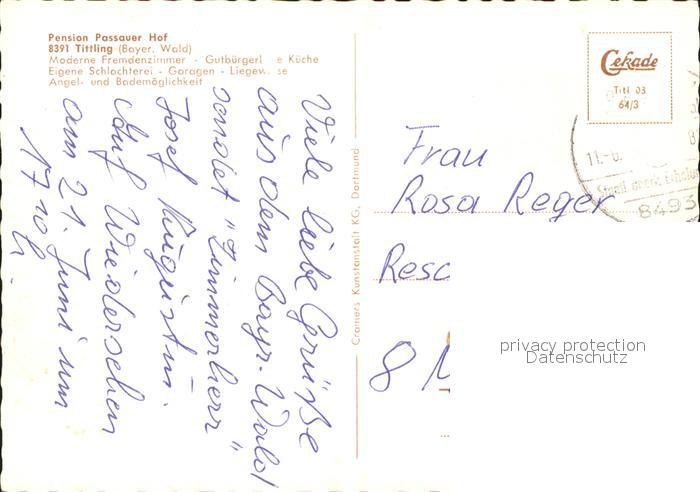 Pension Passauer Hof
8391 Tittling (Bayer. Wald)
Moderne Fremdenzimmer - Gutbürgerl e Küche
Eigene Schlachterei - Garagen - Liegew. se
Angel- und Bademöglichkeit
Viele liebe Grüße
aus dem Bayr. Wald
sendet "Zimmerherr"
Josef
Auf Wiedersehen
am 21. Juni um
17 10 h.
Cramers Kunstanstalt KG, Dortmund
Cekade
Titl 03
64/3
11.-6.
8493
Frau
Rosa Reger
Resc
8
privacy protection
Datenschutz